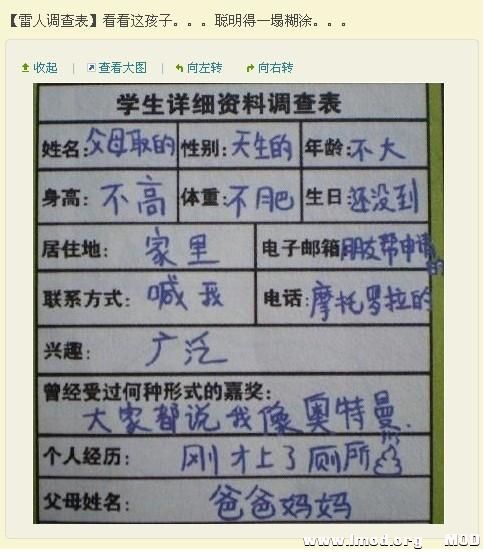 【雷人调查表】看看这孩子。。。聪明得一塌糊涂。。。
收起 | 查看大图 | 向左转 向右转
学生详细资料调查表
姓名:父母取的 性别:天生的 年龄:不大
身高: 不高 体重: 不肥 生日 还没到
居住地: 家里 电子邮箱朋友帮申请的
联系方式: 喊我 电话: 摩托罗拉的
兴趣: 广泛
曾经受过何种形式的嘉奖:
大家都说我像奥特曼.
个人经历: 刚才上了厕所
父母姓名: 爸爸妈妈
www.imod.org MOD